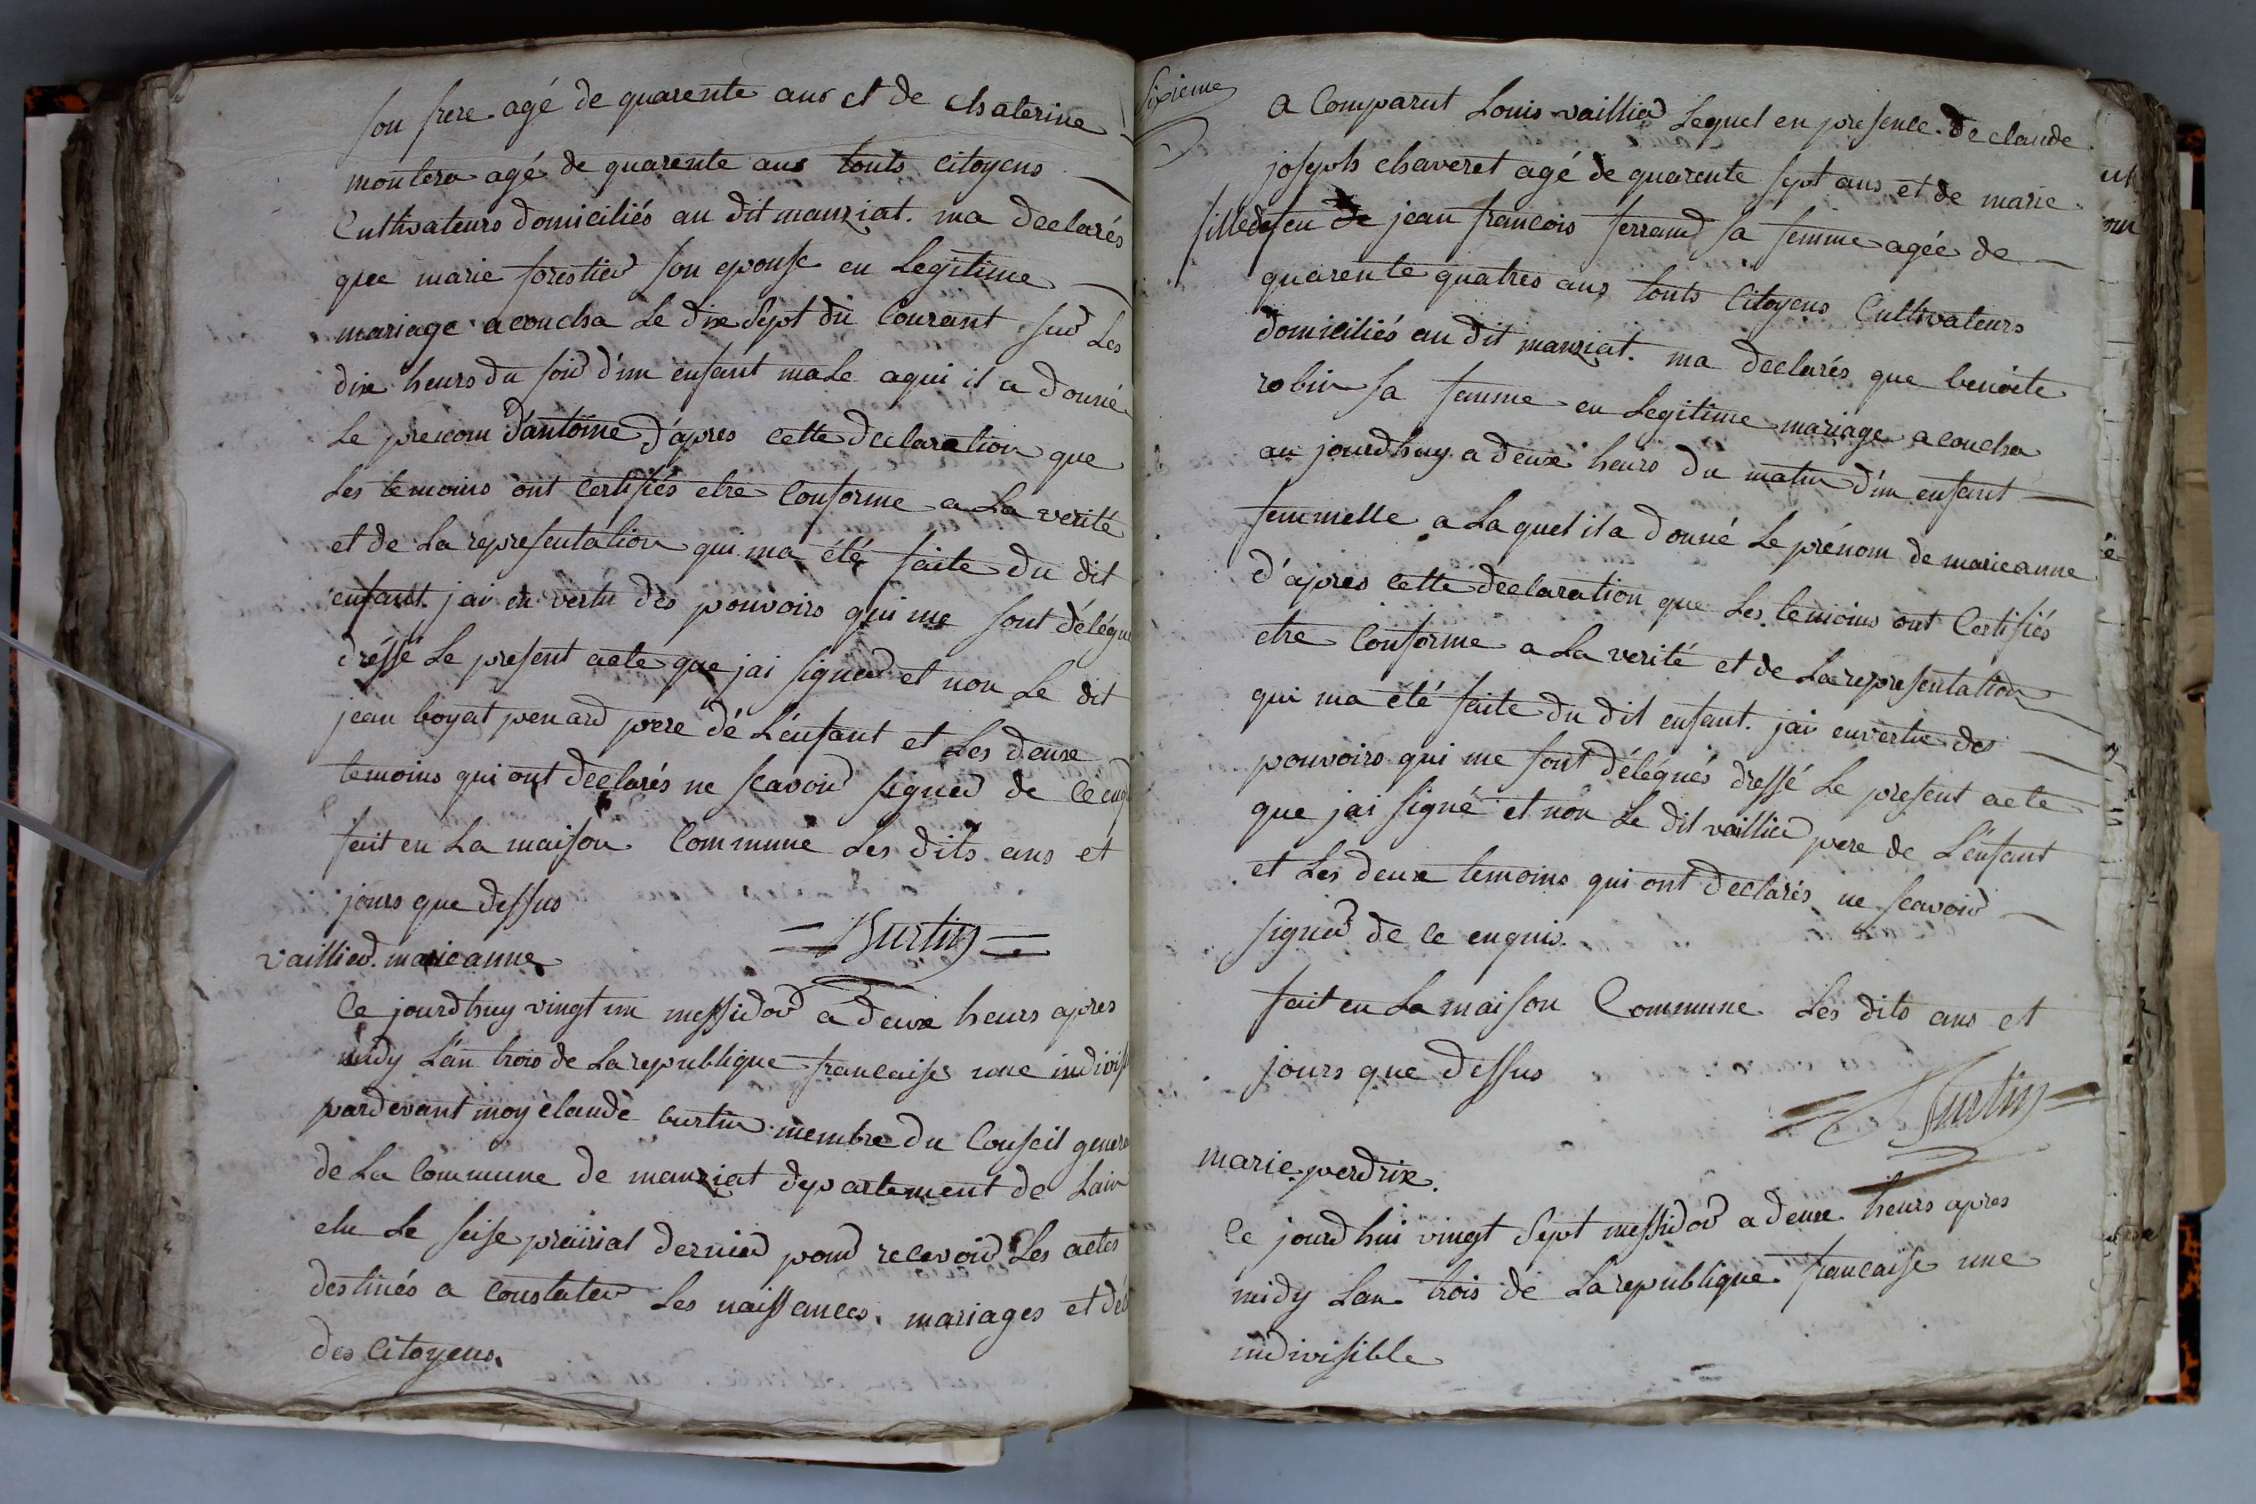 son frere agé de quarente ans et de chaterine
montera agé de quarente ans touts citoyens
Cultivateurs domiciliés au dit manziat. ma declarés
que marie forestier son epouse en Legitime
mariage acoucha Le dix sept du Courant sur Les
dix heurs du soir d'un enfant male aqui il a donné
Le prenom d'antoine d'apres cette declaration que
Les temoins ont certifiés etre Conforme a La verité
et de La representation qui ma été faite du dit
enfant. jai en vertu des pouvoirs qui me sont délégu
dréssé Le present acte que jai signer et non Le dit
jean boyat penard pere dé L'enfant et Les deux
temoins qui ont declarés ne scavoir signer de ce enq
fait en La maison Commune Les dits ans et
jours que dessus
= Burtin =
vaillier. marieanne
Ce jourdhuy vingt un messidor a deux heurs apres
midy L'an trois de La republique francaise une indivis
pardevant moy claude burtin membre du Conseil genera
de La Commune de manziat departement de Lain
elu Le seise prairial dernier pour recevoir Les actes
destinés a Constater Les naissances, mariages et dé
des Citoyens.
Sixieme
a Comparut Louis vaillier Lequel en presence de claude
joseph chaveret agé de quarente sept ans et de marie
fille de feu jean francois ferrand sa femme agée de
quarente quatres ans touts Citoyens Cultivateurs
domiciliés au dit manziat. ma declarés que benoite
robin sa femme en Legitime mariage acoucha
au jourdhuy a deux heurs du matin d'un enfant
femmelle a La quel il a donné Le prénom de marieanne
d'apres cette declaration que Les temoins ont Certifiés
etre Conforme a La verité et de La representation
qui ma été faite du dit enfant. jai en vertu des
pouvoirs qui me sont délégués dressé Le present acte
que jai signé et non Le dit vaillier pere de L'enfant
et Les deux temoins qui ont declarés ne scavoir
signer de ce enquis.
fait en La maison Commune Les dits ans et
jours que dessus
= Burtin =
marie perdrix.
Ce jourdhui vingt sept messidor a deux heurs apres
midy Lan trois de La republique francaise une
indivisible